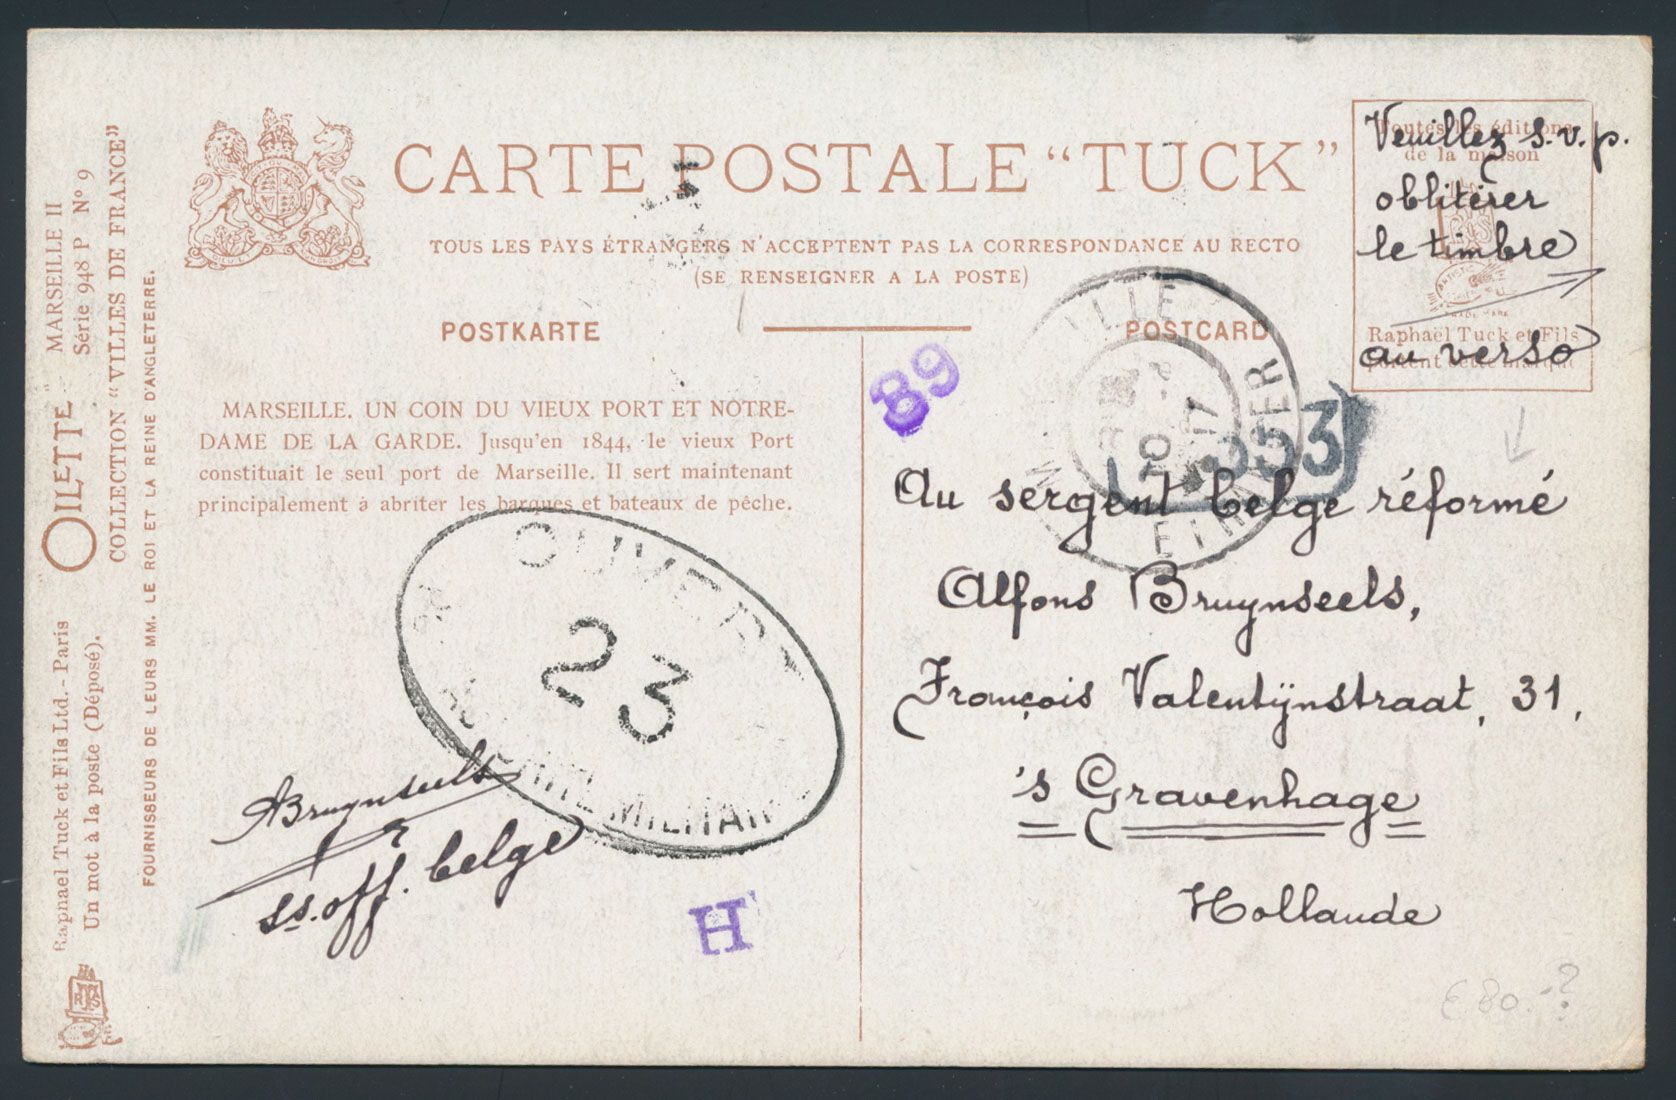 CARTE POSTALE "TUCK"
TOUS LES PAYS ÉTRANGERS N'ACCEPTENT PAS LA CORRESPONDANCE AU RECTO
(SE RENSEIGNER A LA POSTE)
POSTKARTE
POSTCARD
Toutes les éditions
de la maison
Raphaël Tuck et Fils
portent cette marque
TRADE MARK
Veuillez s.v.p.
oblitérer
le timbre
au verso
"OILETTE" "MARSEILLE II
Série 948 P N° 9
COLLECTION "VILLES DE FRANCE"
FOURNISSEURS DE LEURS MM. LE ROI ET LA REINE D'ANGLETERRE.
Raphael Tuck et Fils Ltd. - Paris
Un mot à la poste (Déposé).
MARSEILLE. UN COIN DU VIEUX PORT ET NOTRE-
DAME DE LA GARDE. Jusqu'en 1844, le vieux Port
constituait le seul port de Marseille. Il sert maintenant
principalement à abriter les barques et bateaux de pêche.
89
353
OUVERT
23
MILITAIR
ABruynseels
ss. off. belge
H
Au sergent belge réformé
Alfons Bruynseels,
François Valentijnstraat, 31,
's Gravenhage
Hollande
€ 80.-?